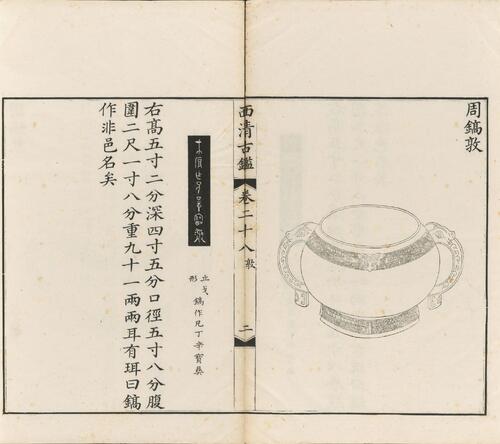 周鎬敦
西清古鑑
卷二十八
敦
二
止戈
形
鎬作兄丁辛寶彝
右高五寸二分深四寸五分口徑五寸八分腹
圍二尺一寸八分重九十一兩兩耳有珥曰鎬
作非邑名矣